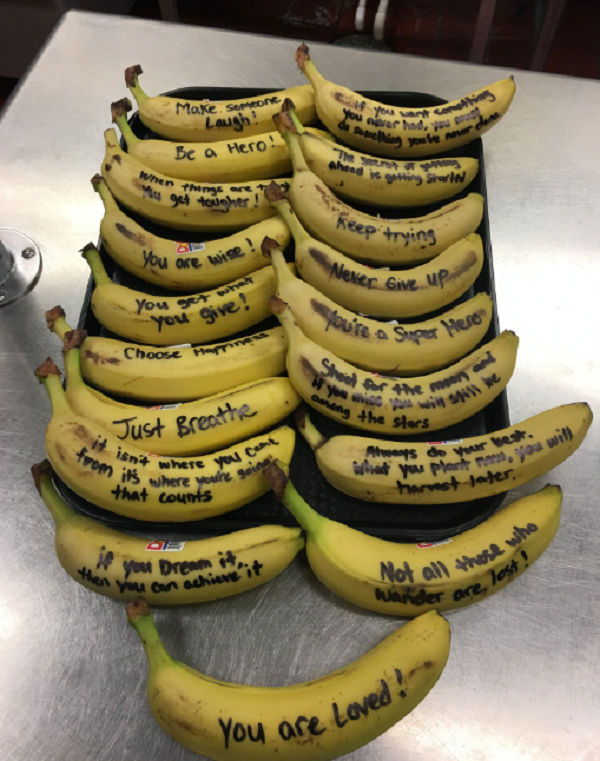 Make someone
Laugh!
Be a Hero!
When things are
You get tougher!
You are wise!
You get what
you give!
Choose Happiness
Just Breathe
it isn't where you come
from it's where you're going
that counts
if you Dream it..
then you can achieve it
If you want something
you never had, you must
do something you've never done
The secret of getting
ahead is getting started
Keep trying
Never Give up
You're a Super Hero
Shoot for the moon and
if you miss you will still be
among the stars
Always do your best.
What you plant now, you will
harvest later.
Not all those who
wander are, lost!
You are Loved!